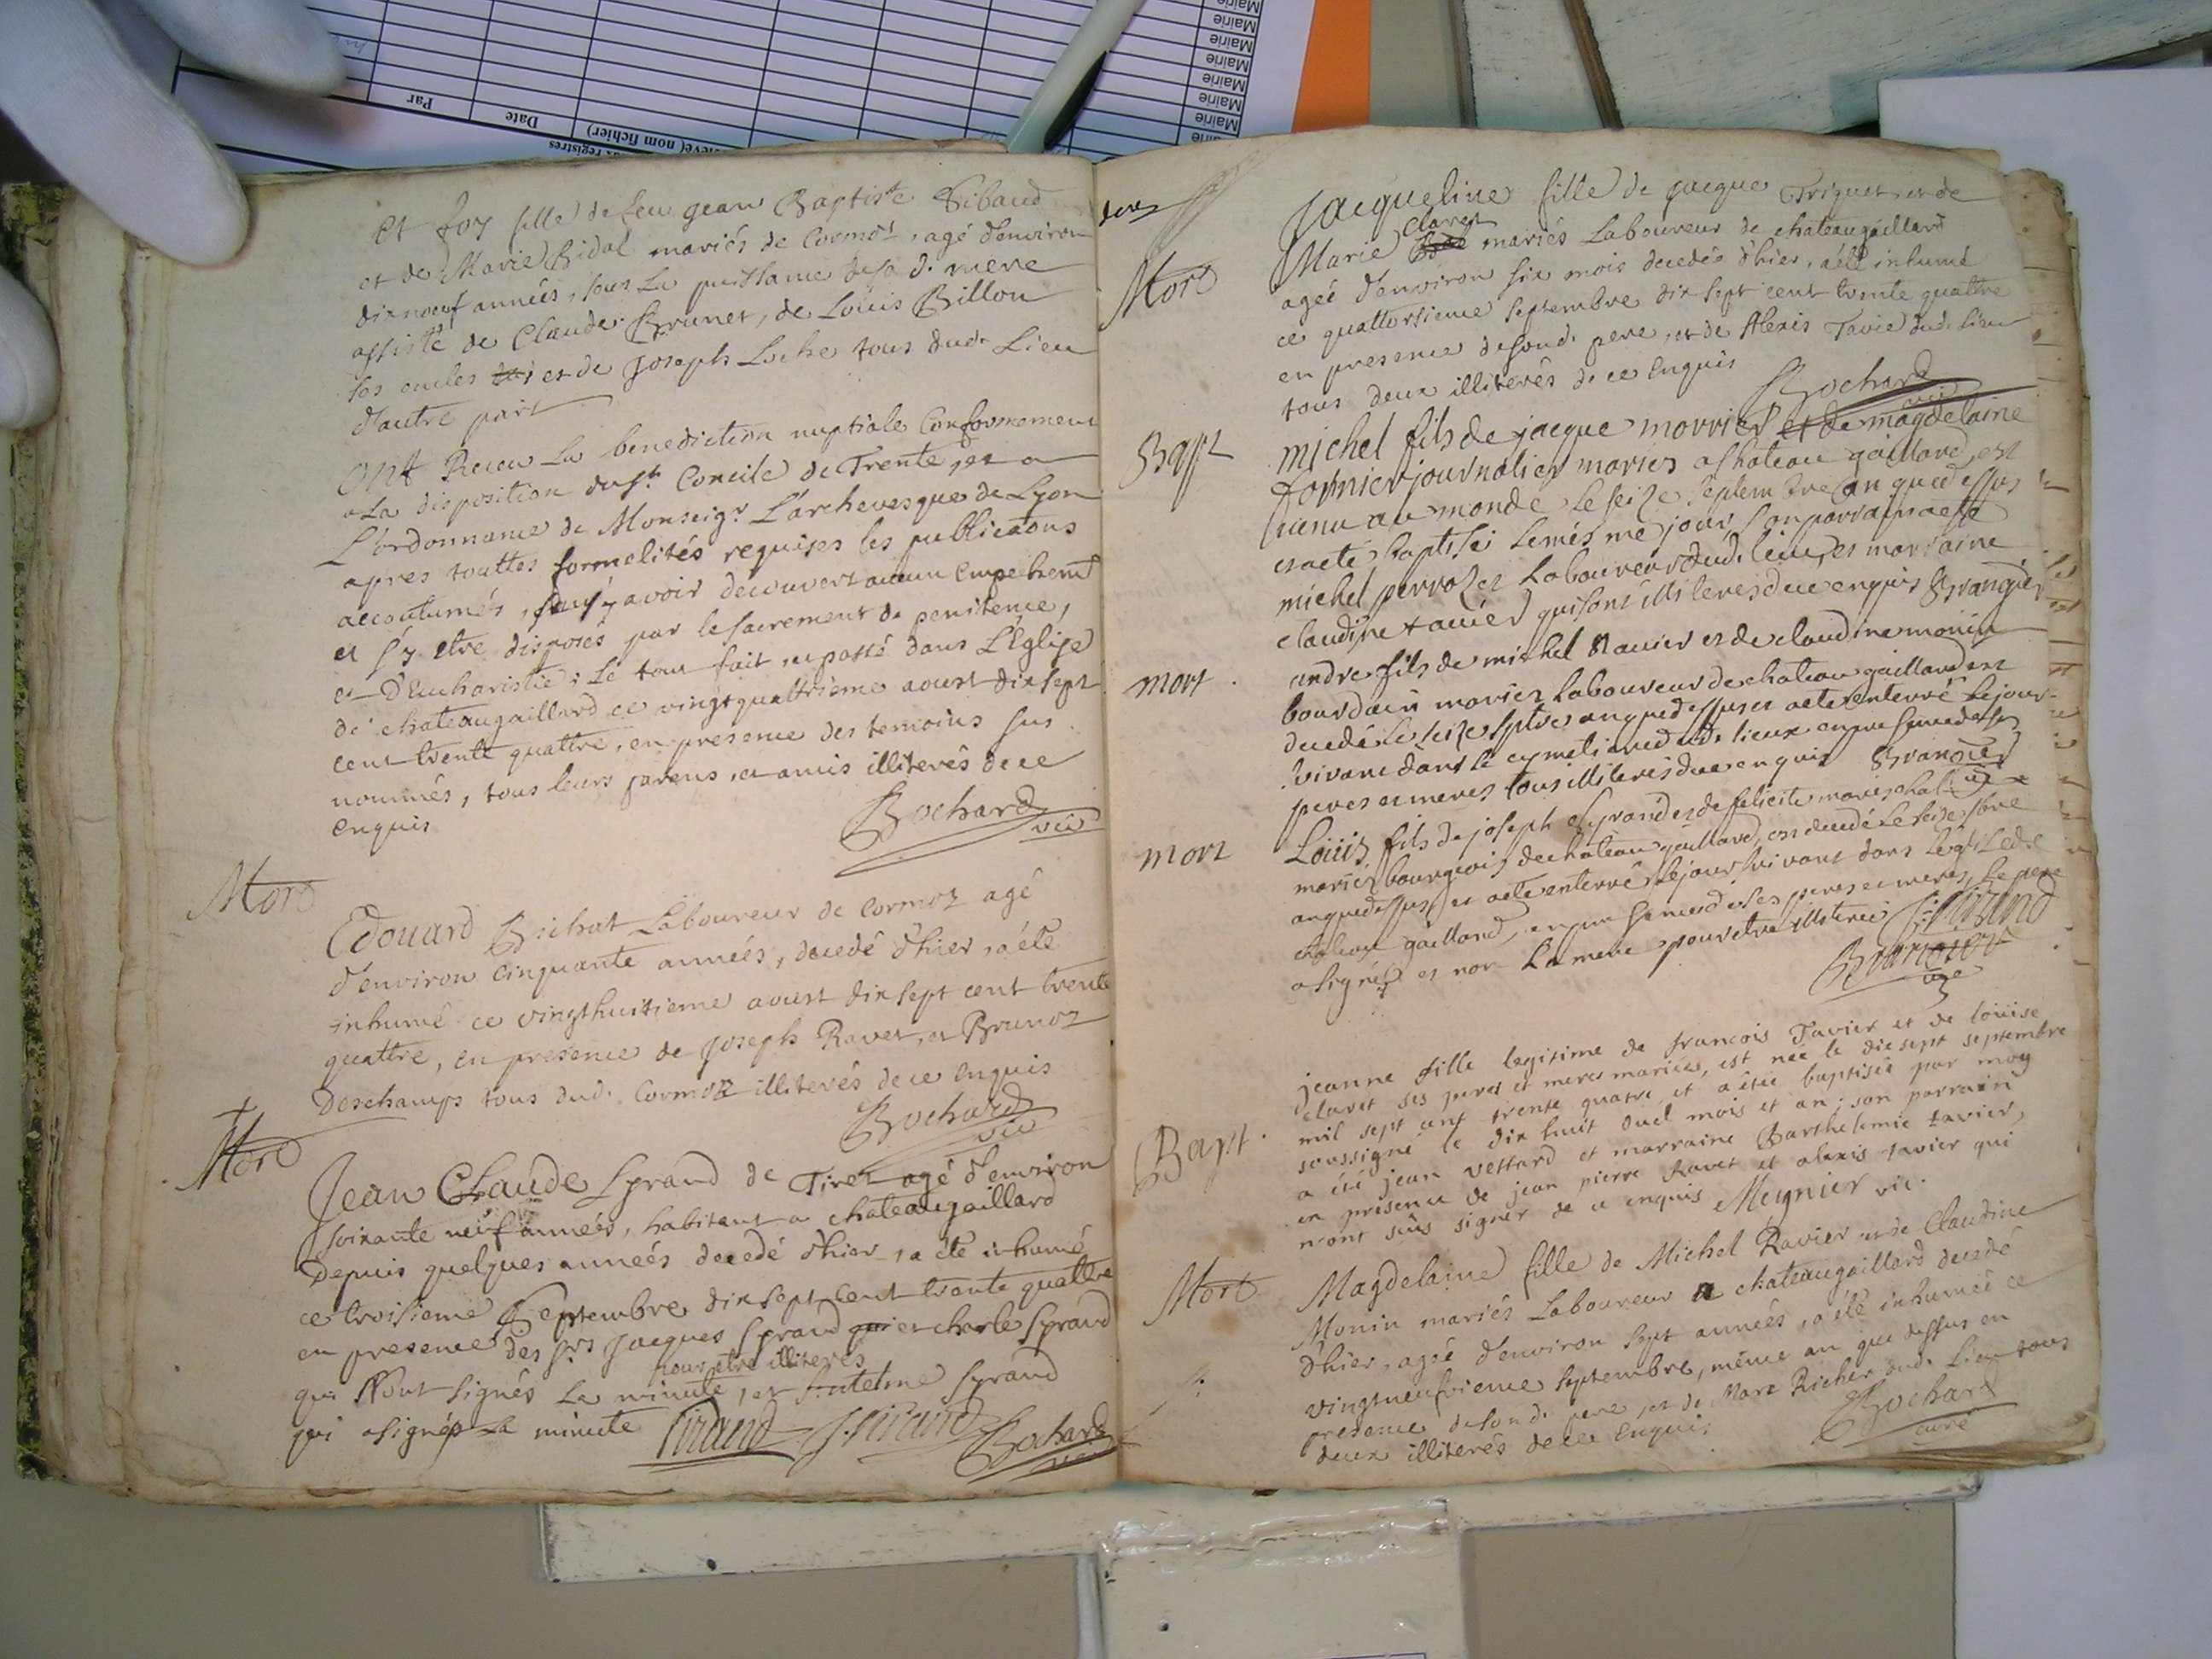 Mairie
Mairie
Mairie
Mairie
Mairie
Mairie
Par
Date
(nom fichier)
registres
et foy fille de feu gean Baptiste Tibaud
et de Marie Bidal mariés de Cormoz, agé d'environ
dix noeuf années, sous La puissance de sa d. mere
assisté de Claude Brunet, de Louis Billon
ses oncles et de Joseph Luche tous dud. Lieu
d'autre part
Ont Receu La benediction nuptiale Conformement
a La disposition du st. Concile de Trente, et a
L'ordonnance de Monseigr. L'archevesque de Lyon
apres touttes formalités requises les publications
accoutumés, sans y avoir decouvert aucun empechemt
et s'y etre disposés par le sacrement de penitence,
et d'Eucharistie; Le tout fait et passé dans L'Eglise
de chateaugaillard ce vingtquattrieme aoust dix sept
cent trente quattre, en presence des temoins sus
nommés, tous leurs parens, et amis illiterés de ce
enquis
Bochard
vic
Mort
Edouard Bichat Laboureur de Cormoz agé
d'environ cinquante années, decedé d'hier, a été
inhumé ce vingthuitieme aoust dix sept cent trente
quattre, en presence de Joseph Ravet, et Brunoz
Deschamps tous dud. Cormoz illiterés de ce enquis
Bochard
vic
Mort
Jean Claude Sirand de Tiret agé d'environ
soixante neuf années, habitant a chateaugaillard
depuis quelques années decedé d'hier, a été inhumé
ce troisieme Septembre dix sept cent trente quattre
en presence des srs Jacques Sirand et charle Sirand
pour etre illiterés
qui N'ont signés La minute, et Sirand
qui a signé La minute Sirand J. Sirand Bochard
vic
Mort
Jacqueline fille de Jacque Triquet et de
Claret
Marie mariés Laboureur de chateaugaillard
ageé d'environ six mois decedée d'hier, a été inhumé
ce quattorsieme septembre dix sept cent trente quattre
en presence de sond. pere, et de Alexis Tavié dud. Lieu
tous deux illiterés de ce Enquis
Bochard
vic
Bapt
michel fils de jacque morrier et de magdelaine
fornier journalier mariez a chateau gaillard, est
venu au monde le seize septembre an que dessus
et a eté baptisé le mesme jour, son parrain a eté
michel perrozet Laboureur dud. lieu, et marraine
claudine tavier qui sont illiteres de ce enquis Brangier
mort
andre fils de michel Ravier et de claudine monin
bourdain mariez laboureur de chateau gaillard est
decedé le seize sptbre an que dessus et a ete enterré le jour
suivant dans le cymetiere dud. lieux en presence de ses
peres et meres tous illiterés de ce enquis Brangier
vic
mort
Loüis fils de joseph Sirand et de felicité mareschal
mariez bourgeois de chateau gaillard, est decedé le seize sbre
an que dessus, et a ete enterré le jour suivant dans l'eglise de
chateau gaillard, en presence de ses peres et meres, le pere
a signé, et non La mere pour etre illiterée J: Sirand
Brangier
vic
Bapt.
jeanne fille legitime de francois Tavier et de loüise
claret ses peres et meres mariées, est née le dix sept septembre
mil sept cent trente quatre, et a étée baptisée par moy
soussigné le dix huit dud mois et an; son parrain
a été jean vettard et marraine Barthelemie tavier,
en presence de jean pierre Ravet et alexis tavier qui
n'ont sçus signer de ce enquis Meynier vic.
Mort
Magdelaine fille de Michel Ravier et de Claudine
Monin mariés Laboureur a chateaugaillard decedé
d'hier, ageé d'environ sept années, a été inhumeé ce
vingtneufvieme septembre, même an que dessus en
presence de sond. pere, et de Marc Richer dud. Lieu tous
deux illiterés de ce Enquis
Bochard
curé